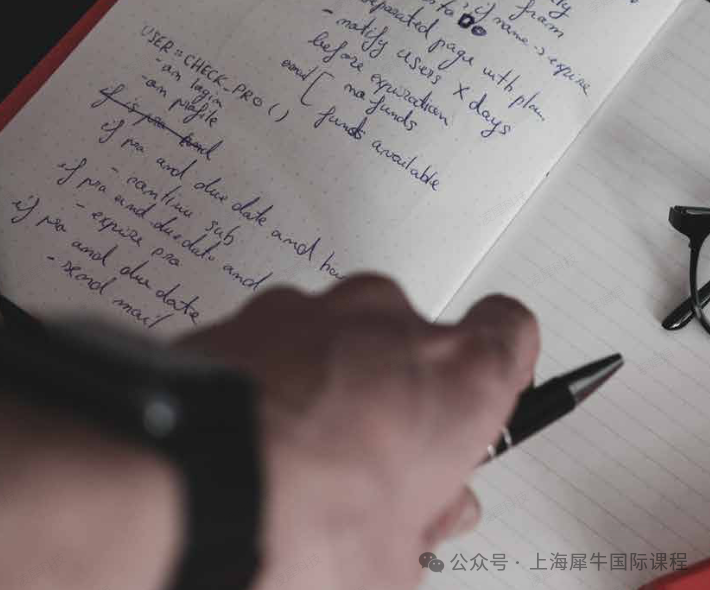 if name → expire
separated page with plan
- notify users X days
before expiration
no funds
funds available
USER::CHECK_PRO()
- on login
- on profile
if is pro and
if pro and due date and
- continue sub
if pro and due date and
- expire pro
if pro and due date
- send mail
公众号 · 上海犀牛国际课程